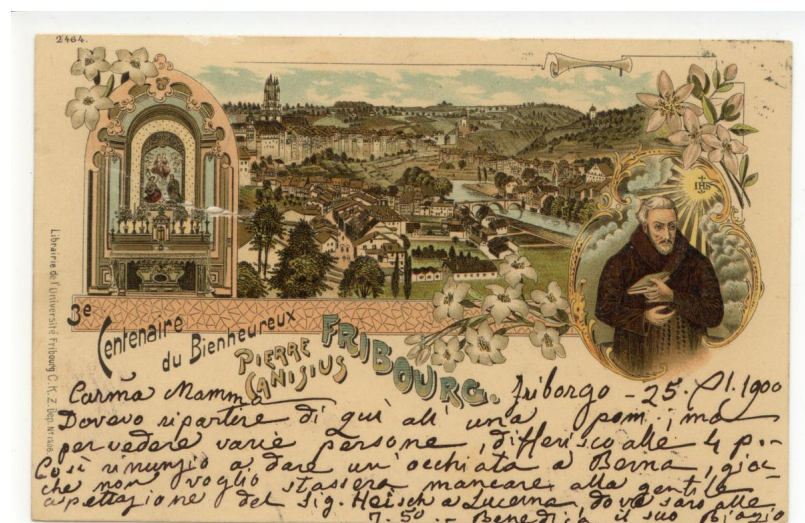 2464.
IHS
Librairie de l'Université Fribourg C. K. Z. Dep. Nº 1396.
3e Centenaire
du Bienheureux
PIERRE
CANISIUS
FRIBOURG.
Friborgo - 25. 1900
Carma Mamma
Dovevo ripartire di qui all' una pom; ma
per vedere varie persone, differisco alle 4 p.-
Così rinunzio a dare un' occhiata a Berna, giac
che non voglio stassera mancare alla gentile
aspettazione del Sig. Heisch a Lucerna, dove sarò alle
7.50 .- Benedica il suo Biagio